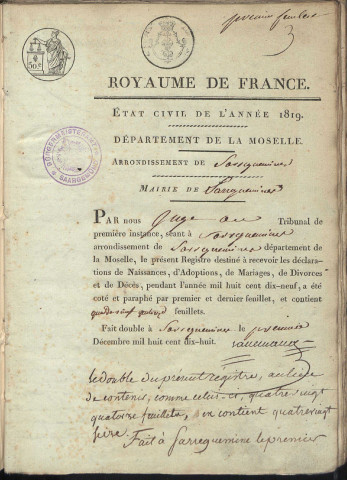 premier feuillet
50c
ROYAUME DE FRANCE.
ÉTAT CIVIL DE L'ANNÉE 1819.
DÉPARTEMENT DE LA MOSELLE.
ARRONDISSEMENT DE Sarreguemines
MAIRIE DE Sarreguemines
BÜRGERMEISTERAMT SAARGEMÜND
PAR nous Juge au Tribunal de
première instance, séant à Sarreguemines
arrondissement de Sarreguemines département de
la Moselle, le présent Registre destiné à recevoir les déclara-
tions de Naissances, d'Adoptions, de Mariages, de Divorces
et de Décès, pendant l'année mil huit cent dix-neuf, a été
coté et paraphé par premier et dernier feuillet, et contient
quatre vingt quatorze feuillets.
Fait double à Sarreguemines le premier
Décembre mil huit cent dix-huit.
le double du présent registre, au lieu
de contenir, comme celui-ci, quatre vingt
quatorze feuillets, en contient quatre vingt
seize.
Fait à Sarreguemine le premier